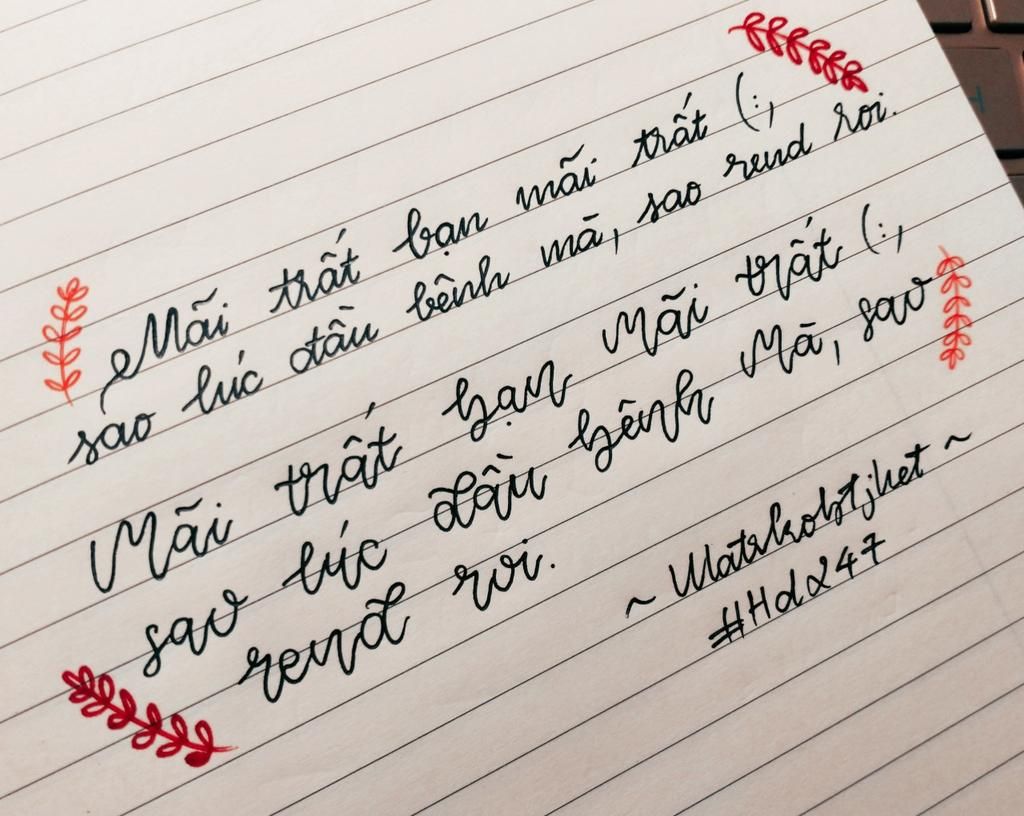 Mãi trất bạn mãi trất (:,
sao lúc đầu bênh mā, sao rend roi.
Mãi trất bạn Mãi trất (:,
sao lúc đầu bênh Mā, sao
rend roi.
~ Matskobtjhet ~
#Hd247